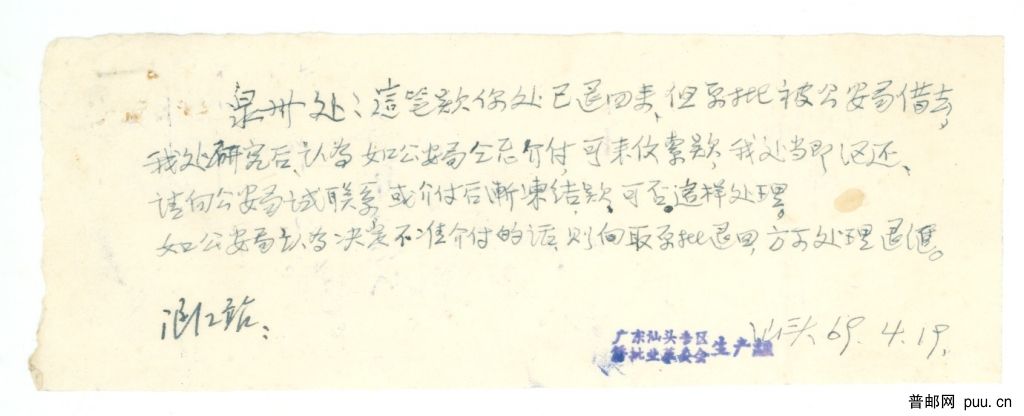 泉州处：這笔款你处已退回来，但原批被公安局借去，
我处研究后，认为如公安局今后介付，可来收索款，我处当即汇还、
请向公安局试联系，或介付后渐凍结款，可否這样处理。
如公安局认为决是不准介付的话，则向取原批退回，方可处理退滙。
涵江站：
汕头69.4.19.
广东汕头专区
侨批业革委会生产组
普邮网 puu.cn